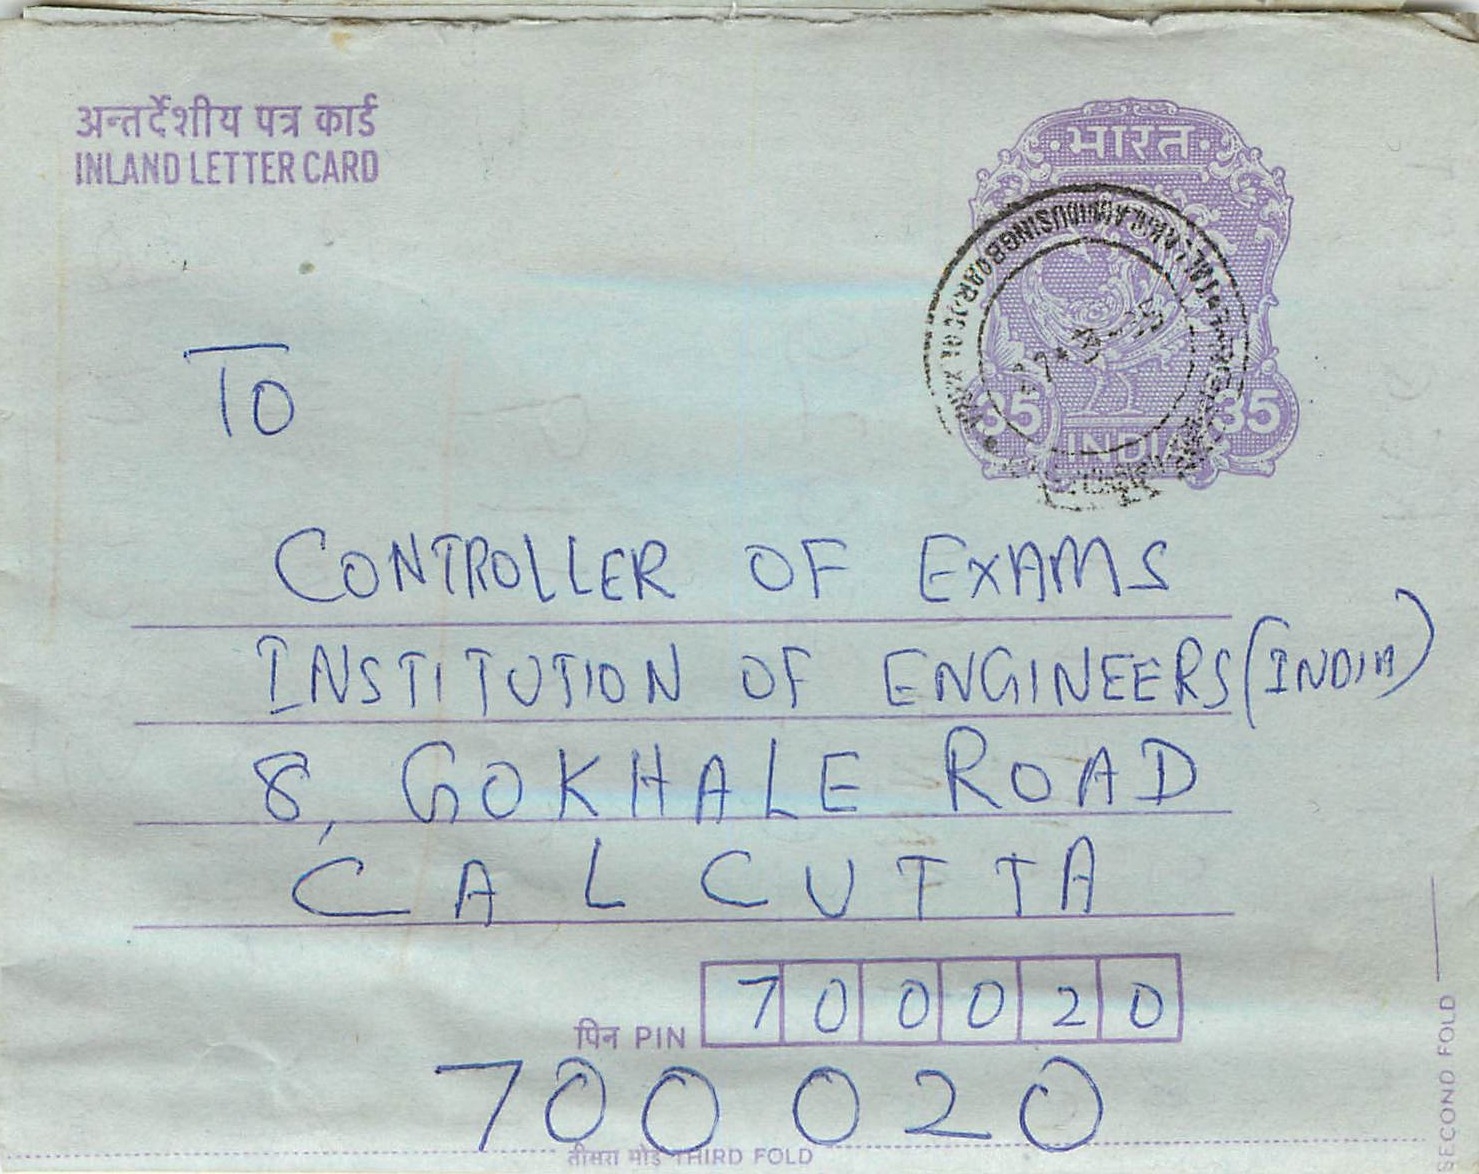 अन्तर्देशीय पत्र कार्ड
INLAND LETTER CARD
भारत
35 35
INDIA
TO
CONTROLLER OF EXAMS
INSTITUTION OF ENGINEERS (INDIA)
8, GOKHALE ROAD
CALCUTTA
पिन PIN 700020
700020
तीसरा मोड़ THIRD FOLD
SECOND FOLD